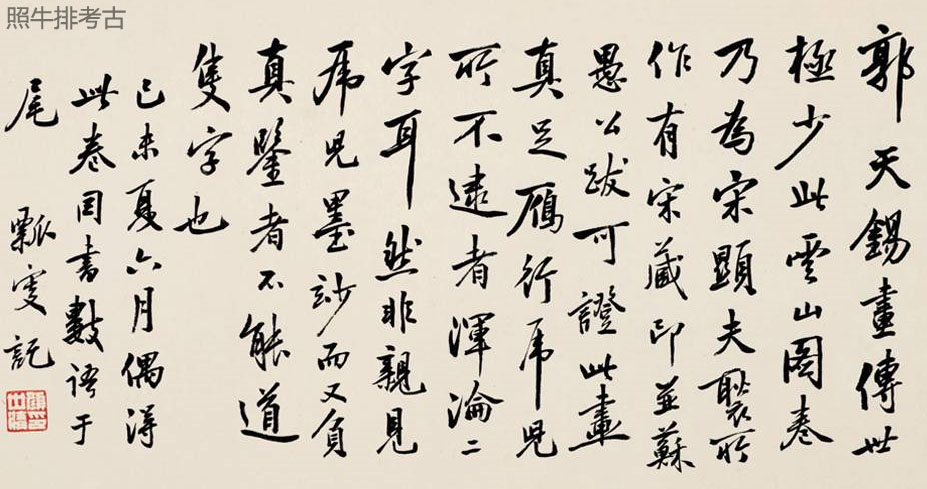 照牛排考古
郭天錫畫傳世
極少此雲山圖卷
乃為宋顯夫褧所
作有宋藏印並蘇
愚公跋可證此畫
真足雁行虎兒
所不逮者渾淪二
字耳然非親見
虎兒墨妙而又負
真鑒者不能道
隻字也
己未夏六月偶得
此卷因書數語于
尾 瓢叟記